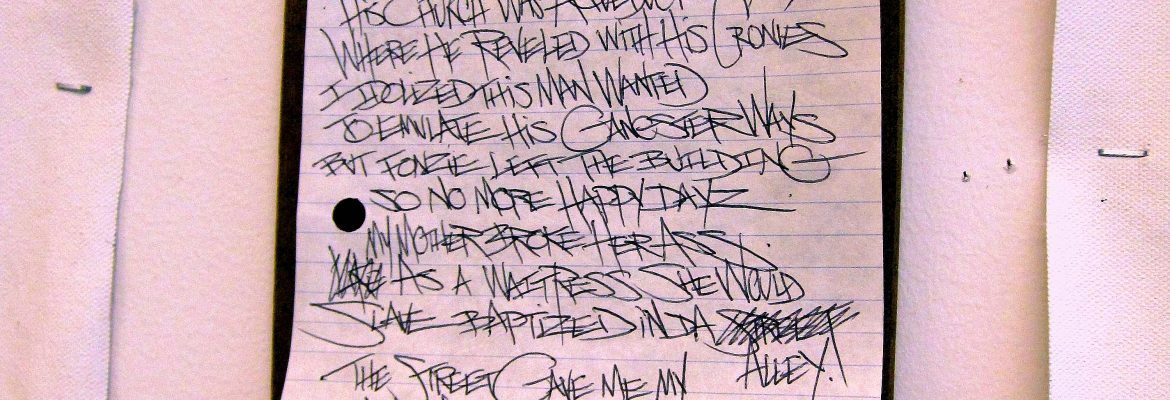 HIS CHURCH WAS A
WHERE HE REVELED WITH HIS CRONIES
I IDOLIZED THIS MAN WANTED
TO EMULATE HIS GANGSTER WAYS
BUT FONZIE LEFT THE BUILDING
SO NO MORE HAPPY DAYZ
MY MOTHER BROKE HER ASS
AS A WAITRESS SHE WOULD
SLAVE BAPTIZED IN DA
ALLEY.!
THE STREET GAVE ME MY